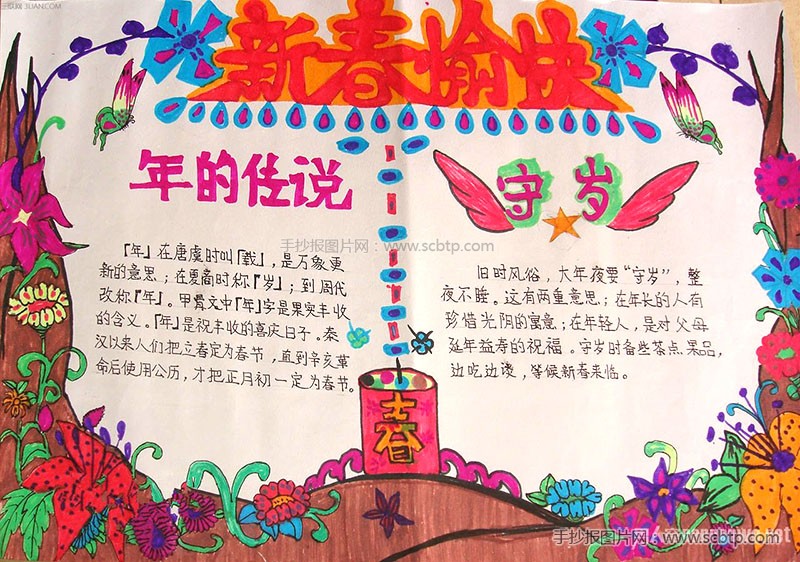 三联网 3LIAN.COM
新春愉快
年的传说
守岁
手抄报图片网：www.scbtp.com
「年」在唐虞时叫「载」，是万象更
新的意思；在夏商时称「岁」；到周代
改称「年」。甲骨文中「年」字是果实丰收
的含义。「年」是祝丰收的喜庆日子。秦
汉以来人们把立春定为春节，直到辛亥革
命后使用公历，才把正月初一定为春节。
旧时风俗，大年夜要“守岁”，整
夜不睡。这有两重意思；在年长的人有
珍惜光阴的寓意；在年轻人，是对父母
延年益寿的祝福。守岁时备些茶点、果品，
边吃边谈，等候新春来临。
春
手抄报图片网：www.scbtp.com